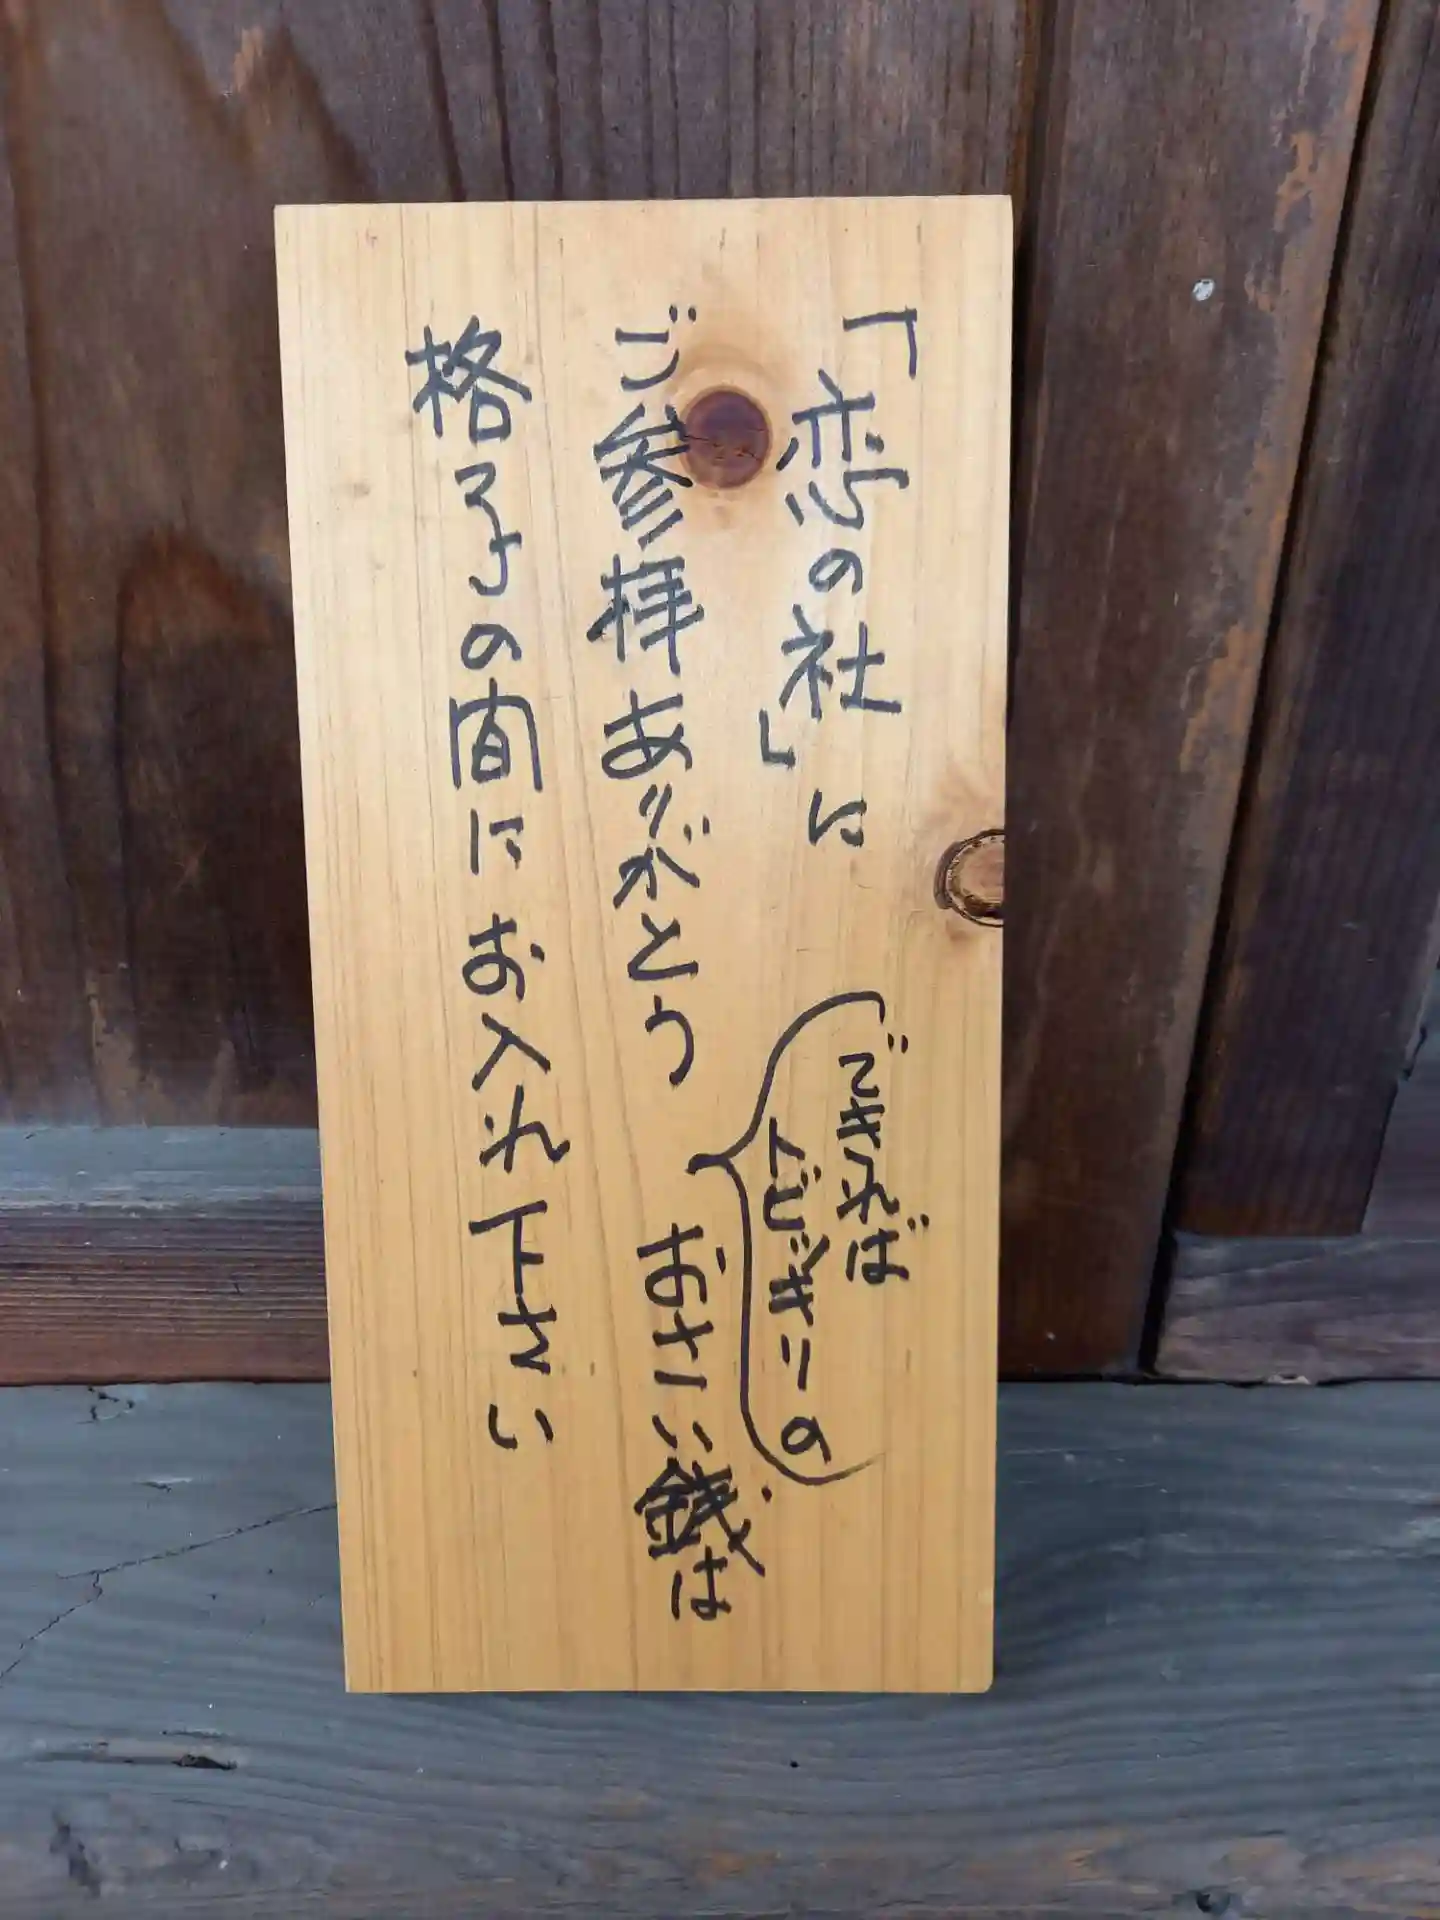 「恋の社」に
ご参拝ありがとう
できれば
どじょっきりの
おさい銭は
格子の間にお入れ下さい